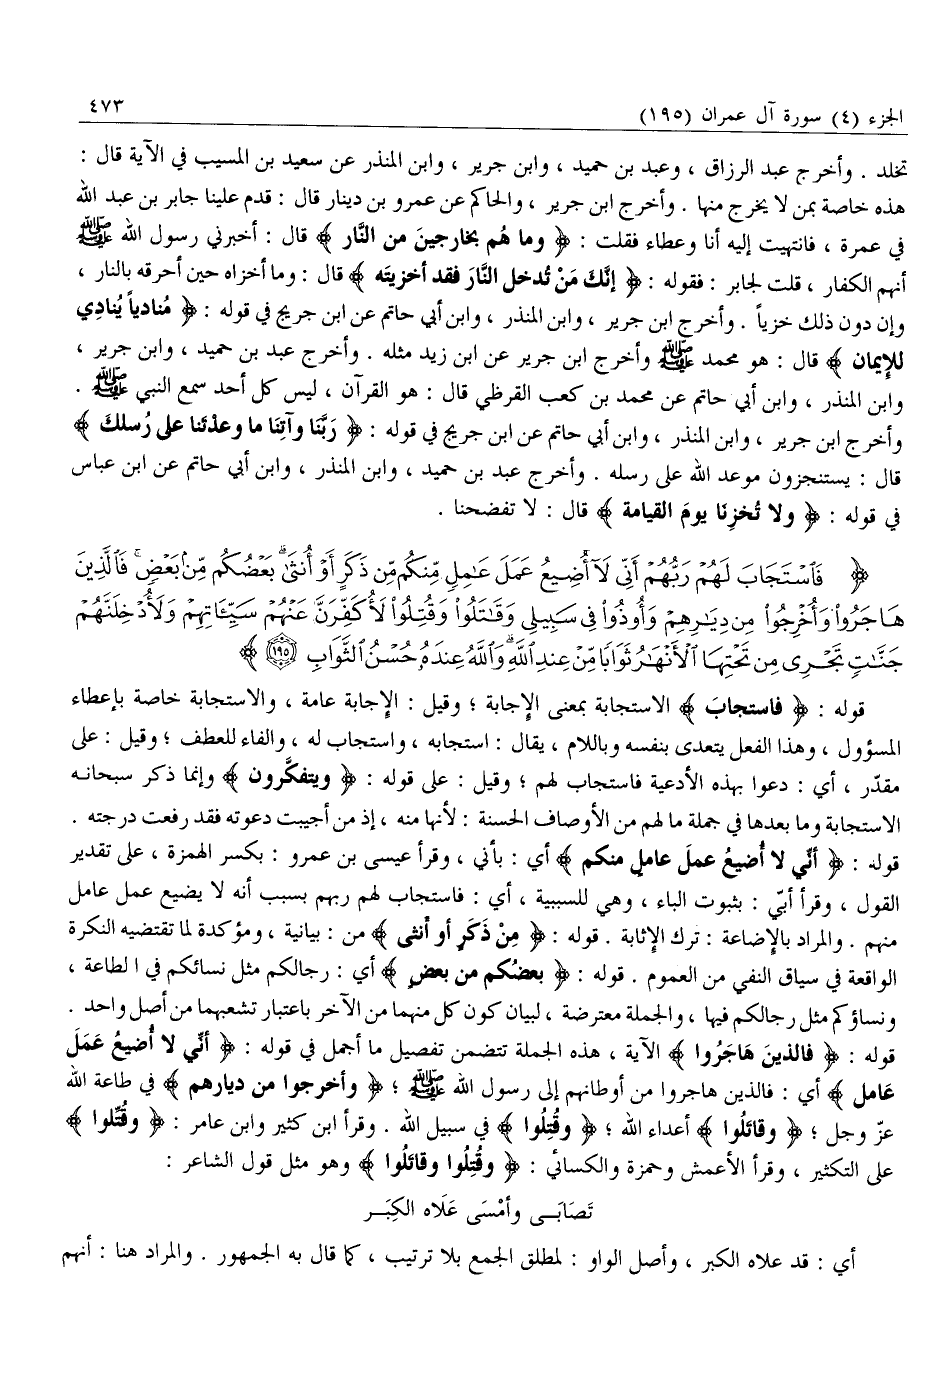 الجزء (٤) سورة آل عمران (١٩٥)
٤٧٣
تخلد . وأخرج عبد الرزاق ، وعبد بن حميد ، وابن جرير ، وابن المنذر عن سعيد بن المسيب في الآية قال :
هذه خاصة بمن لا يخرج منها . وأخرج ابن جرير ، والحاكم عن عمرو بن دينار قال : قدم علينا جابر بن عبد الله
في عمرة ، فانتهيت إليه أنا وعطاء فقلت : ﴿ وما هُم بخارجينَ من النَّار ﴾ قال : أخبرني رسول الله ﷺ
أنهم الكفار ، قلت لجابر : فقوله : ﴿ إنَّكَ مَنْ تُدخل النَّارَ فقد أخزيتَه ﴾ قال : وما أخزاه حين أحرقه بالنار ،
وإن دون ذلك خزياً . وأخرج ابن جرير ، وابن المنذر ، وابن أبي حاتم عن ابن جريج في قوله : ﴿ مُنادياً يُنادِي
للإيمان ﴾ قال : هو محمد ﷺ وأخرج ابن جرير عن ابن زيد مثله . وأخرج عبد بن حميد ، وابن جرير ،
وابن المنذر ، وابن أبي حاتم عن محمد بن كعب القرظي قال : هو القرآن ، ليس كل أحد سمع النبي ﷺ .
وأخرج ابن جرير ، وابن المنذر ، وابن أبي حاتم عن ابن جريج في قوله : ﴿ رَبَّنَا وآتِنَا ما وعدْتَنا على رُسلك ﴾
قال : يستنجزون موعد الله على رسله . وأخرج عبد بن حميد ، وابن المنذر ، وابن أبي حاتم عن ابن عباس
في قوله : ﴿ ولا تُخزِنَا يومَ القيامة ﴾ قال : لا تفضحنا .
﴿ فَٱسْتَجَابَ لَهُمْ رَبُّهُمْ أَنِّى لَآ أُضِيعُ عَمَلَ عَٰمِلٍ مِّنكُم مِّن ذَكَرٍ أَوْ أُنثَىٰ ۖ بَعْضُكُم مِّنۢ بَعْضٍ ۖ فَٱلَّذِينَ
هَاجَرُوا۟ وَأُخْرِجُوا۟ مِن دِيَٰرِهِمْ وَأُوذُوا۟ فِى سَبِيلِى وَقَٰتَلُوا۟ وَقُتِلُوا۟ لَأُكَفِّرَنَّ عَنْهُمْ سَيِّـَٔاتِهِمْ وَلَأُدْخِلَنَّهُمْ
جَنَّٰتٍ تَجْرِى مِن تَحْتِهَا ٱلْأَنْهَٰرُ ثَوَابًا مِّنْ عِندِ ٱللَّهِ ۗ وَٱللَّهُ عِندَهُۥ حُسْنُ ٱلثَّوَابِ ١٩٥ ﴾
قوله : ﴿ فاستجابَ ﴾ الاستجابة بمعنى الإجابة ؛ وقيل : الإجابة عامة ، والاستجابة خاصة بإعطاء
المسؤول ، وهذا الفعل يتعدى بنفسه وباللام ، يقال : استجابه ، واستجاب له ، والفاء للعطف ؛ وقيل : على
مقدّر ، أي : دعوا بهذه الأدعية فاستجاب لهم ؛ وقيل : على قوله : ﴿ ويتفكَّرون ﴾ وإنما ذكر سبحانه
الاستجابة وما بعدها في جملة ما لهم من الأوصاف الحسنة : لأنها منه ، إذ من أجيبت دعوته فقد رفعت درجته .
قوله : ﴿ أنِّي لا أُضيعُ عملَ عاملٍ منكم ﴾ أي : بأني ، وقرأ عيسى بن عمرو : بكسر الهمزة ، على تقدير
القول ، وقرأ أبيّ : بثبوت الباء ، وهي للسببية ، أي : فاستجاب لهم ربهم بسبب أنه لا يضيع عمل عامل
منهم . والمراد بالإضاعة : ترك الإثابة . قوله : ﴿ مِنْ ذَكَرٍ أو أنثى ﴾ من : بيانية ، ومؤكدة لما تقتضيه النكرة
الواقعة في سياق النفي من العموم . قوله : ﴿ بعضُكم من بعضٍ ﴾ أي : رجالكم مثل نسائكم في الطاعة ،
ونساؤكم مثل رجالكم فيها ، والجملة معترضة ، لبيان كون كل منهما من الآخر باعتبار تشعبهما من أصل واحد .
قوله : ﴿ فالذينَ هاجَرُوا ﴾ الآية ، هذه الجملة تتضمن تفصيل ما أجمل في قوله : ﴿ أنِّي لا أُضيعُ عَمَلَ
عَامل ﴾ أي : فالذين هاجروا من أوطانهم إلى رسول الله ﷺ ؛ ﴿ وأخرجوا من ديارهم ﴾ في طاعة الله
عزّ وجل ؛ ﴿ وقاتَلُوا ﴾ أعداء الله ؛ ﴿ وقُتِلُوا ﴾ في سبيل الله . وقرأ ابن كثير وابن عامر : ﴿ وقُتِّلوا ﴾
على التكثير ، وقرأ الأعمش وحمزة والكسائي : ﴿ وقُتِلُوا وقاتَلُوا ﴾ وهو مثل قول الشاعر :
تَصَابَى وأمْسَى عَلَاه الكِبَر
أي : قد علاه الكبر ، وأصل الواو : لمطلق الجمع بلا ترتيب ، كما قال به الجمهور . والمراد هنا : أنهم